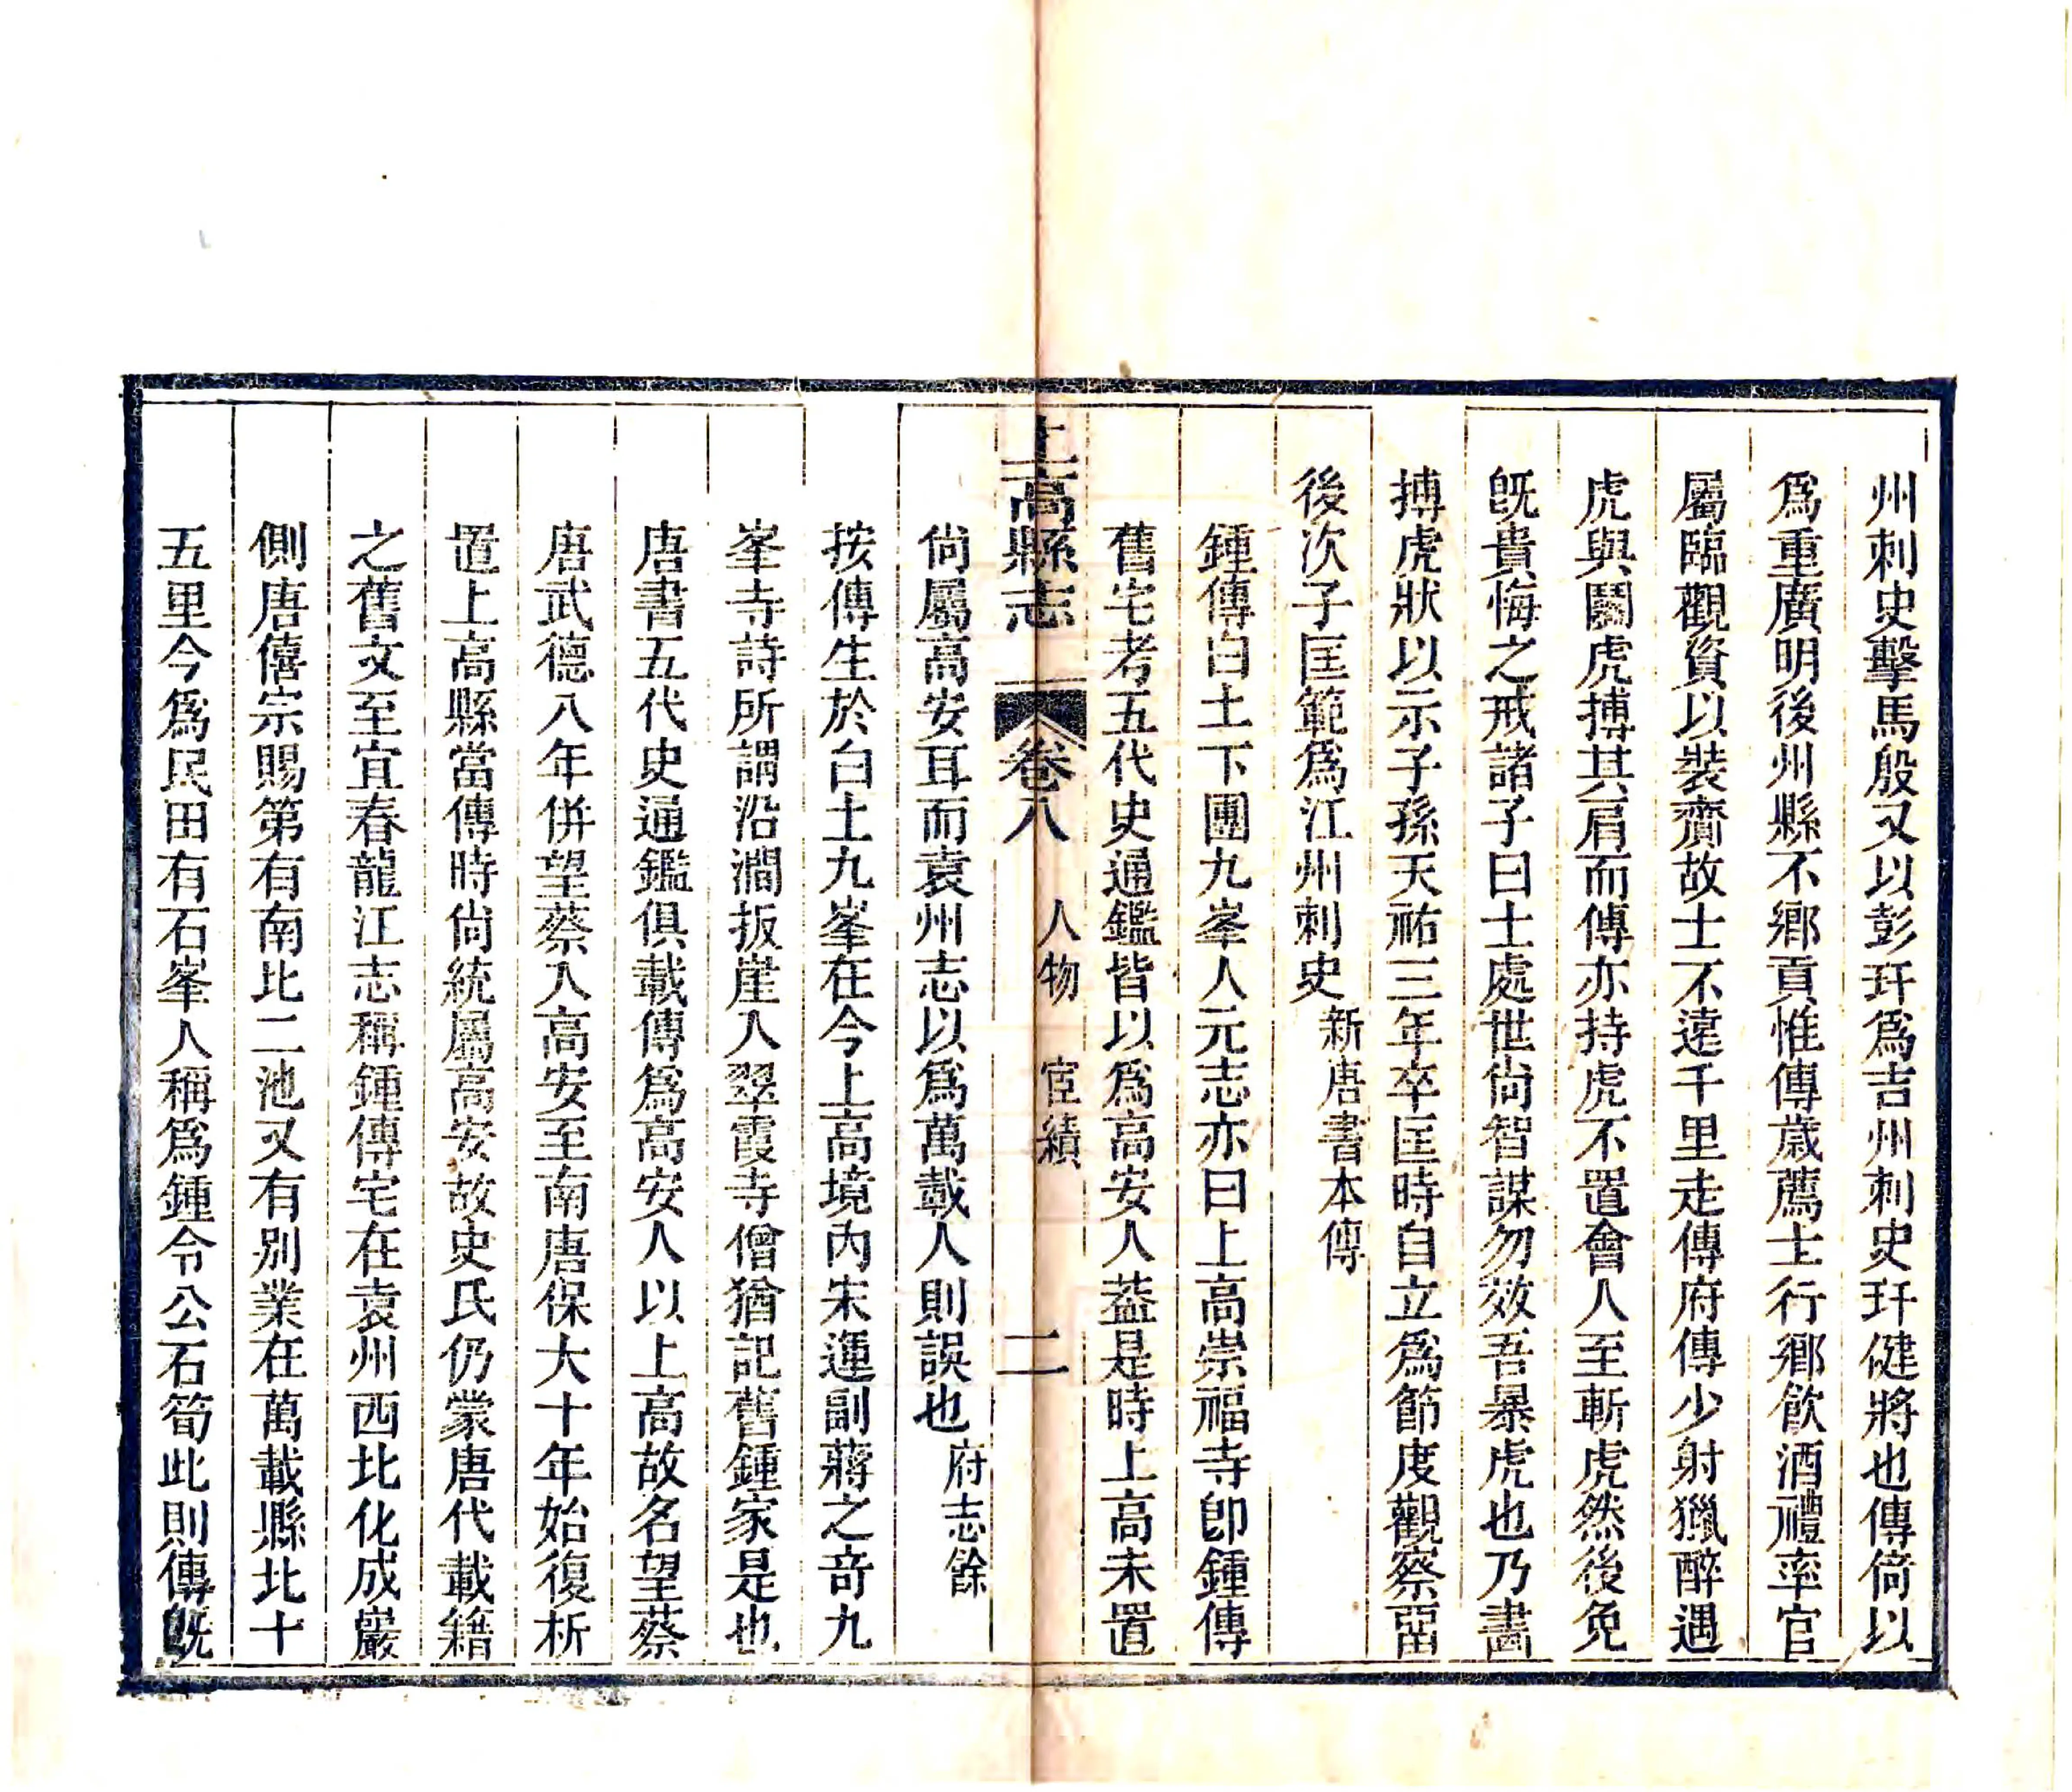 州刺史擊馬殷又以彭玕爲吉州刺史玕健將也傳倚以
爲重廣明後州縣不鄉貢惟傳歲薦士行鄉飲酒禮率官
屬臨觀資以裝齎故士不遠千里走傳府傳少射獵醉遇
虎與鬭虎搏其肩而傳亦持虎不置會人至斬虎然後免
旣貴悔之戒諸子曰士處世尙智謀勿效吾暴虎也乃畫
搏虎狀以示子孫天祐三年卒匡時自立爲節度觀察畱
後次子匡範爲江州刺史新唐書本傳
鍾傳白土下團九峯人元志亦曰上高崇福寺卽鍾傳
舊宅考五代史通鑑皆以爲高安人葢是時上高未置
上高縣志 卷八 人物 宦績 二
尙屬高安耳而袁州志以爲萬載人則誤也府志餘
按傳生於白土九峯在今上高境內朱運副蔣之奇九
峯寺詩所謂沿澗扳崖入翠霞寺僧猶記舊鍾家是也
唐書五代史通鑑俱載傳爲高安人以上高故名望蔡
唐武德八年併望蔡入高安至南唐保大十年始復析
置上高縣當傳時尙統屬高安故史氏仍蒙唐代載籍
之舊文至宜春龍江志稱鍾傳宅在袁州西北化成巖
側唐僖宗賜第有南北二池又有別業在萬載縣北十
五里今爲民田有石峯人稱爲鍾令公石筍此則傳旣